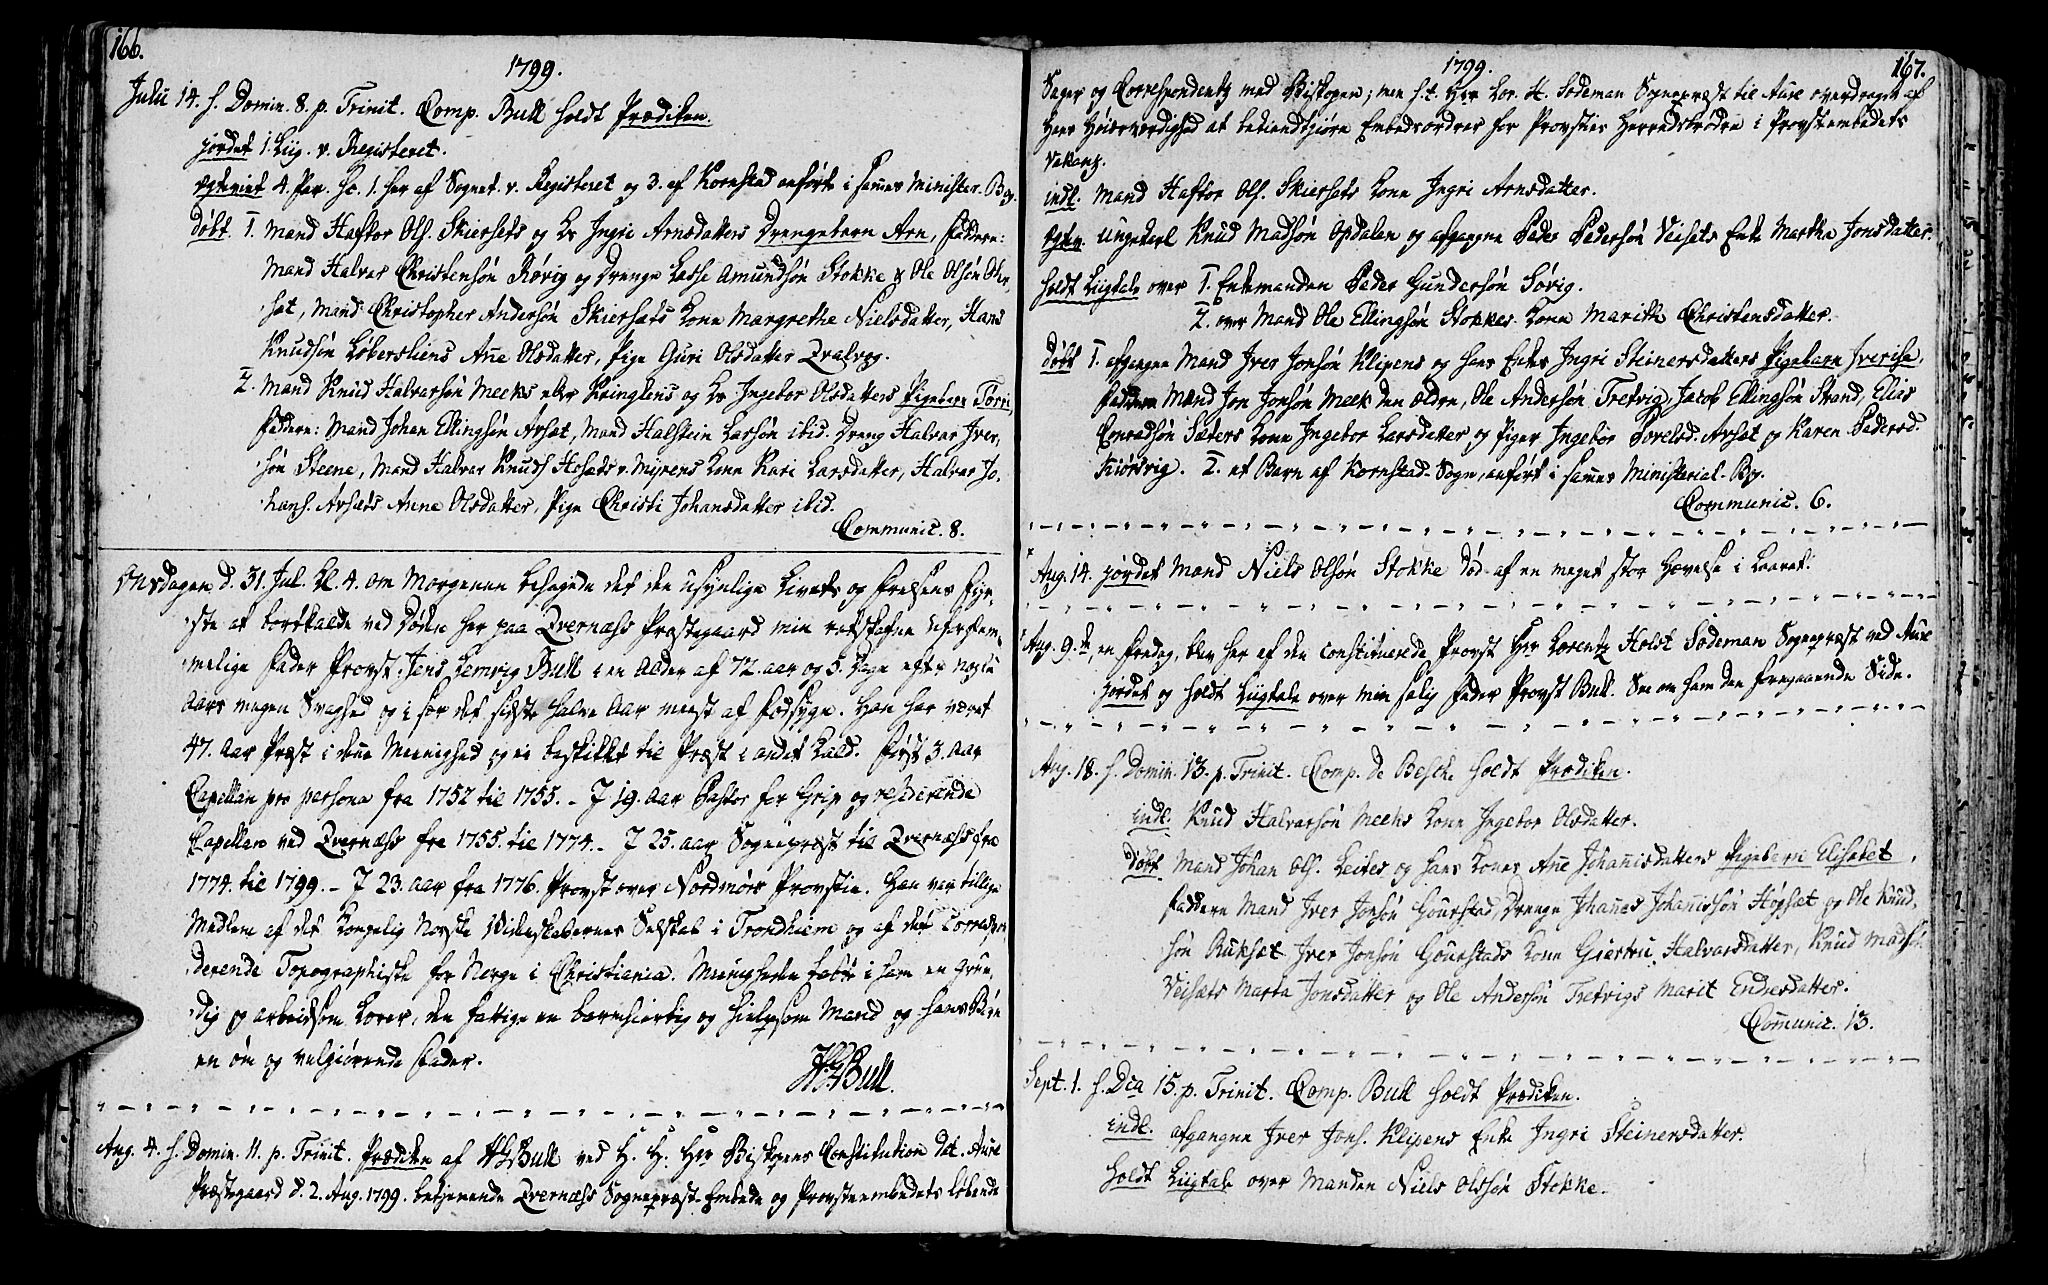 166.
1799.
Julii 14. f. Domin. 8. p. Trinit. Comp. Bull holdt Prædiken.
jordet 1. Liig. v. Registeret.
egteviet 4. Par. Sc. 1. her af Sognet v. Registeret og 3. af Kornstad anførte i sammes Minister. Bog.
døbt. I. Mand Haftor Ols. Skiersets og K. Ingri Arnesdatters Drengebarn Arn, faddere:
Mand Halvar Christensön Rövig og Drenge Lasse Amundsön Stokke & Ole Olsön
sæt, Mand Christopher Andersön Skiersets Kone Margrethe Nielsdatter, Hans
Knudsön Löbersliens Añe Olsdatter, Pige Guri Olsdatter Qvalvog.
2. Mand Knud Halvarsön Meeks eller Kringlens og K. Ingebor Olsdatters Pigebarn
faddere: Mand Johan Ellingsön Arsæt, Mand Halstein Larsön ibid. Dreng Halvar Iver-
sön Steene, Mand Halvar Knuds. Hosets v. Myrens Kone Kari Larsdatter, Halvar Jo-
hans. Arsæts Anne Olsdatter, Pige Christi Johansdatter ibid.
Communic. 8.
Onsdagen d. 31. Jul. Kl. 4. om Morgenen behagede det den usynlige Livets og Fredsens Fyr-
ste at bortkalde ved Döden her paa Qvernæss Præstegaard min retskafne uforglem-
melige Fader Provst Jens Lemvig Bull i en Alder af 72. aar og 5. Dage efter nogle
Aars megen Svaghed og i sær det sidste halve Aar meest af Fodsyge. Han har været
47. Aar Præst i denne Menighed og ei beskikket til Præst i andet Kald. Först 3. Aar
Capellan pro persona fra 1752 til 1755. - I 19. Aar Pastor for Grip og residerende
Capellan ved Qvernæss fra 1755. til 1774. - I 25. aar Sognepræst til Qvernæss fra
1774. til 1799. - I 23. aar fra 1776. Provst over Nordmörs Provstie. Han var tillige
Medlem af det Kongelig Norske Videnskabernes Selskab i Trondhiem og af det Correspon-
derende Topographiske for Norge i Christiania. Menigheden tabte i ham en grun-
dig og arbeidsom Lærer, de fattige en barmhiertig og hielpsom Mand og hans Börn
en öm og velgiörende Fader.
Bull.
Aug. 4. f. Domin. 11. p. Trinit. Prædiken af Bull ved H. H. Hr Biskopens Constitution dat. Aure
Præstegaard d. 2. Aug. 1799. betjenende Qvernæss Sognepræst-Embede og Provsteembedets løbende
1799.
167.
Sager og Correspondentz med Biskopen; men s.t. Herr Lor. H. Sodeman Sognepræst til Aure overdraget af
Hans Höiærværdighed at bekiendtgjöre Embedsordrer for Provstiets Herredsbrödre i Provstembedets
Vakanz.
indl. Mand Haftor Ols. Skiersets Kone Ingri Arnsdatter.
egtev. Ungekarl Knud Madsön Opdalen og afgangne Peder Pedersön Veisets Enke Martha Jonsdatter.
holdt Liigtale over 1. Enkemanden Peder Gundersön Sövig.
2. over Mand Ole Ellingsön Stokkes Kone Marith Christensdatter.
döbt 1. afgangne Mand Iver Jonsön Klipens og hans Enkes Ingri Steinersdatters Pigebarn Iverise,
faddere Mand Jon Jonsön Meek den ældre, Ole Andersön Tretvig, Jacob Ellingsön Strand, Elias
Conradsön Sæters Kone Ingebor Larsdatter og Piger Ingebor Povelsd. Arsæt og Karen Pedersd.
Kiörsvig. 2. et Barn af Kornstad-Sogn, anfört i sammes Ministerial-Bog.
Communic. 6.
Aug. 14. jordet Mand Niels Olsön Stokke död af en meget stor Hævelse i Laaret.
Aug. 9. de, en Fredag, blev her af den constituerede Provst Herr Lorentz Holst Sodeman Sognepræst ved Aure
jordet og holdt Liigtale over min salig Fader Provst Bull. See om ham den foregaaende Side.
Aug. 18. f. Domin. 13. p. Trinit. Comp. de Besche holdt Prædiken.
indl. Knud Halvarsön Meeks Kone Ingebor Olsdatter.
Döbt Mand Johan Ols. Leites og hans Kones Añe Johañisdatters Pigebarn Elisabet,
faddere Mand Iver Jonsön Gourstad, Drenge Johañes Johañissön Högset og Ole Knud-
sön Rukset, Iver Jonsön Gourstads Kone Giertru Halvarsdatter, Knud Madsön
Veisets Marta Jonsdatter og Ole Andersön Tretvigs Marit Endresdatter.
Coñunic. 13.
Sept. 1. f. Dca 15. p. Trinit. Comp. Bull holdt Prædiken.
indl. afgangne Iver Jons. Klipens Enke Ingri Steinersdatter.
holdt Liigtale over Manden Niels Olsön Stokke.